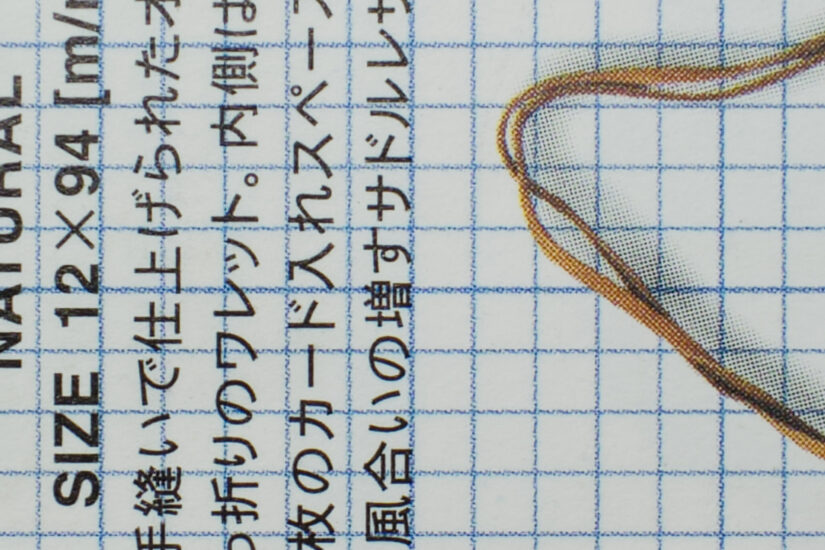 NATURAL
SIZE 12×94 [m/
手縫いで仕上げられた
つ折りのワレット。内側は
枚のカード入れスペー
風合いの増すサドルレザ